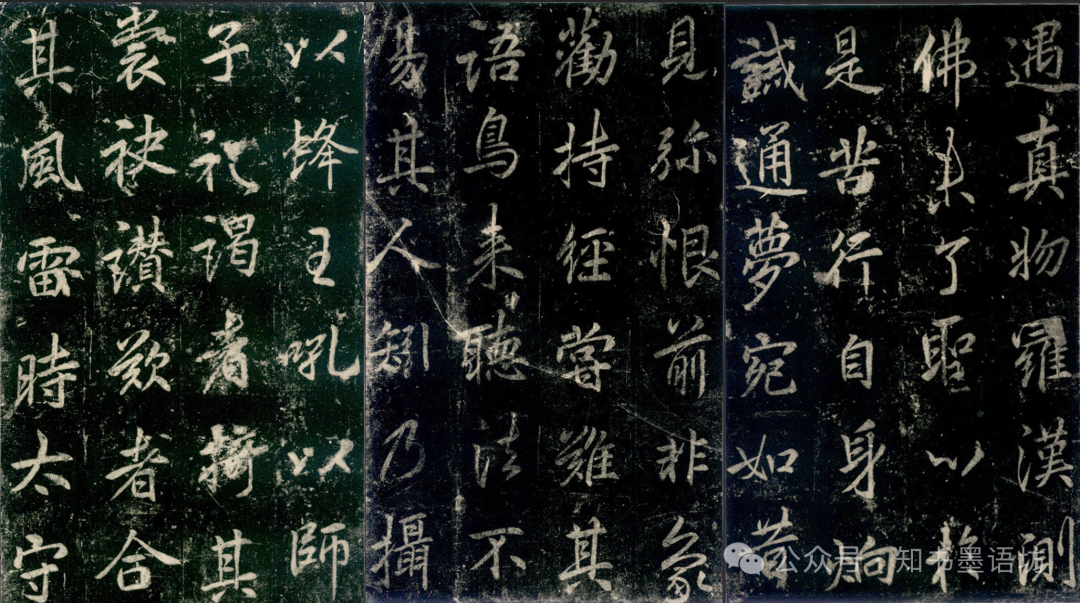 遇真物羅漢測
佛未了聖以於
是苦行自身
誠通夢宛如
見弥恨前非象
勸持經嘗難其
語鳥来聽法不
傷其人矧乃攝
以王吼以師
子礼謁者擠其
裳袂讚歎者合
其風雷時太守
公众号·知书墨语坊